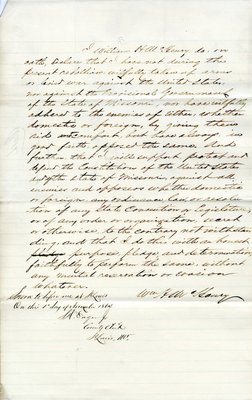 I William H. W. do on
oath, declare that I have not during the
present rebellion wilfully taken up arms
or levied war against the United States,
nor against the Provisional Government
of the State of Missouri, nor have wilfully
adhered to the enemies of either, whether
domestic or foreign, by giving them
aid and comfort, but have always in
good faith opposed the same. And
further that I will support protect and
defend the Constitution of the United States
and of the State of Missouri, against all
enemies and opposers whether domestic
or foreign, any ordinance law or resolu
tion of any State Convention or Legislature
or of any order or organization, secret
or otherwise to the contrary not withstan
ding, and that I do this with an honest
purpose, pledge and determination
faithfully to perform the same, without
any mental reservation or evasion
whatever.
Sworn to before me at St Louis
On this 1st day of 186
County Clerk
St Louis Mo.